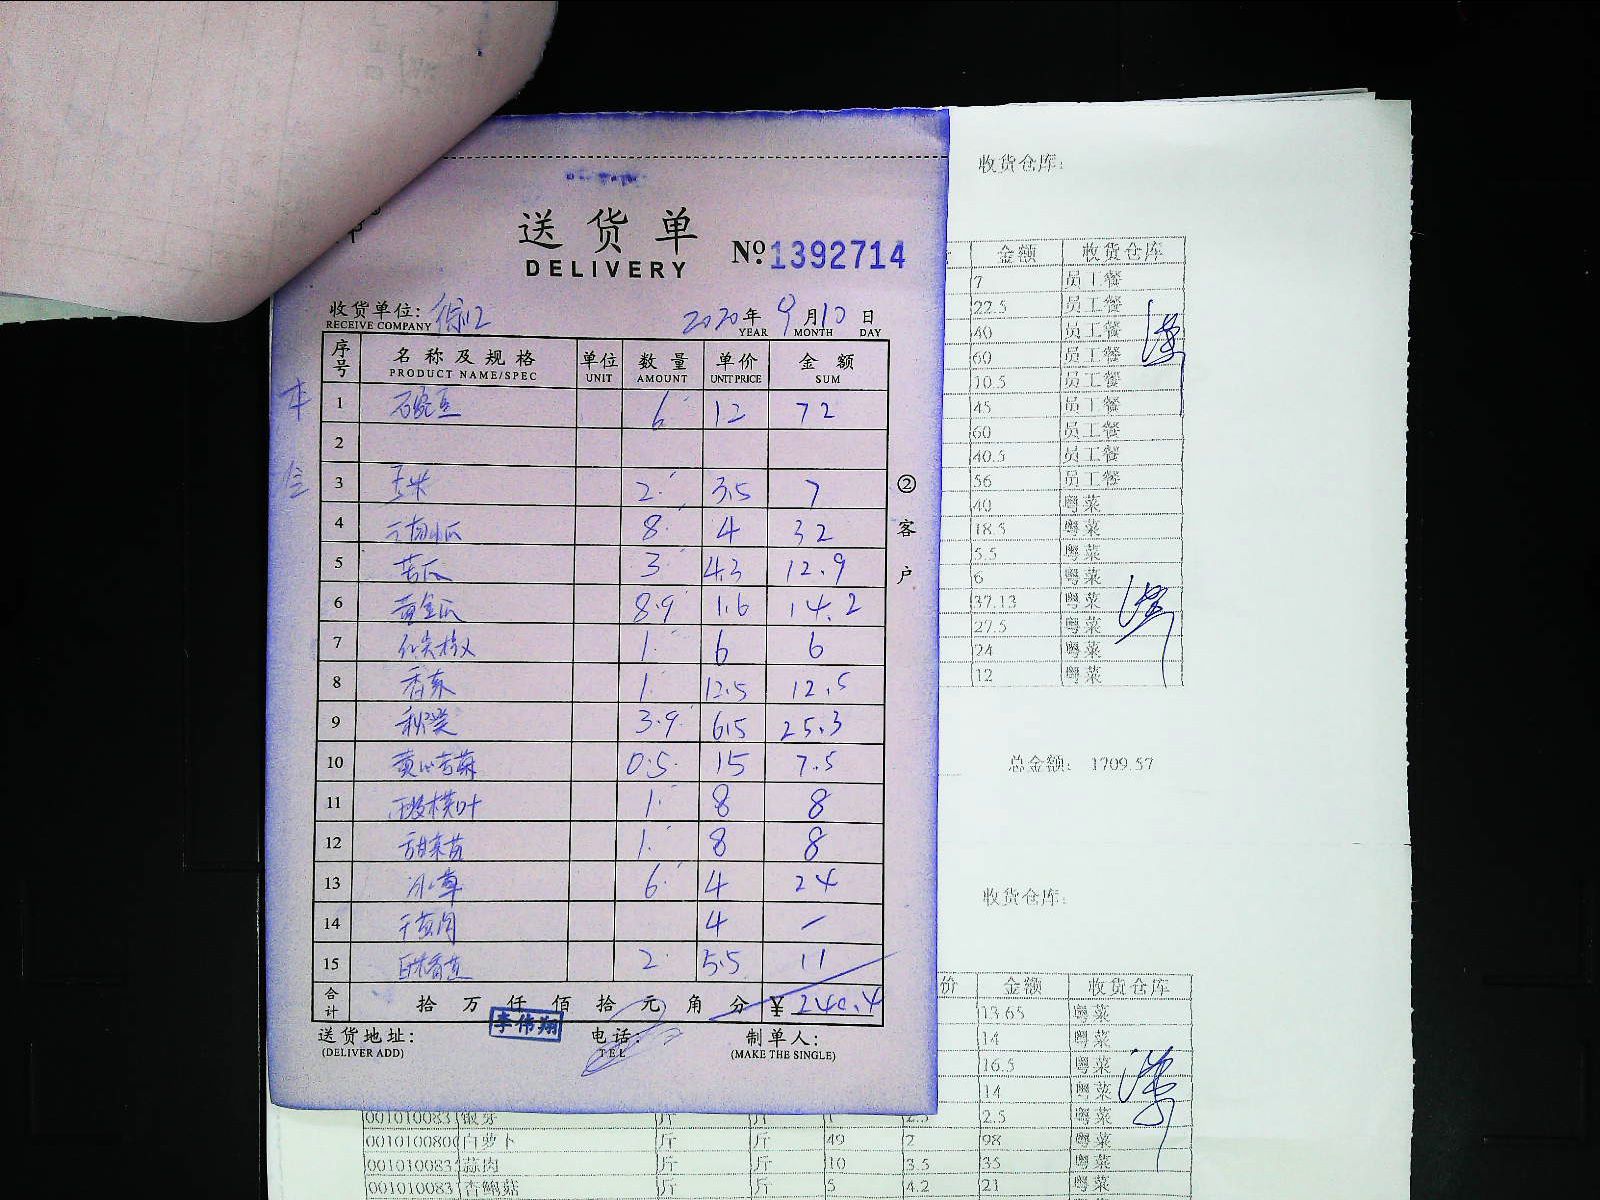 收货仓库:
送货单
DELIVERY
№ 1392714
收货单位:
RECEIVE COMPANY
2020年9月10日
YEAR MONTH DAY
序号 名称及规格 单位 数量 单价 金额
PRODUCT NAME/SPEC UNIT AMOUNT UNIT PRICE SUM
1 石豌豆 6 12 72
2
3 玉米 2 3.5 7
4 云南小瓜 8 4 32
5 苦瓜 3 4.3 12.9
6 黄金瓜 8.9 1.6 14.2
7 红尖椒 1 6 6
8 香菜 1 12.5 12.5
9 秋葵 3.9 6.5 25.3
10 0.5 15 7.5
11 1 8 8
12 甜菜苗 1 8 8
13 冰草 6 4 24
14 4 —
15 2 5.5 11
合计 拾 万 仟 佰 拾 元 角 分 ¥ 240.4
李伟翔
送货地址:
(DELIVER ADD)
电话:
TEL
制单人:
(MAKE THE SINGLE)
②客户
金额 收货仓库
7 员工餐
22.5 员工餐
40 员工餐
60 员工餐
10.5 员工餐
45 员工餐
60 员工餐
40.5 员工餐
56 员工餐
40 粤菜
18.5 粤菜
5.5 粤菜
6 粤菜
37.13 粤菜
27.5 粤菜
24 粤菜
12 粤菜
总金额: 1709.57
收货仓库:
价 金额 收货仓库
13.65 粤菜
14 粤菜
16.5 粤菜
14 粤菜
001010083 银芽 斤 斤 1 2.5 2.5 粤菜
001010080 白萝卜 斤 斤 49 2 98 粤菜
001010083 蒜肉 斤 斤 10 3.5 35 粤菜
001010083 杏鲍菇 斤 斤 5 4.2 21 粤菜